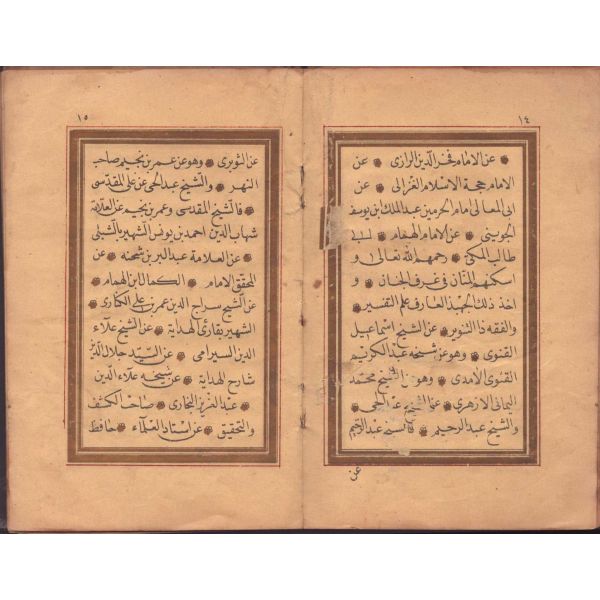 ١٤
عن الامام فخر الدين الرازى عن
الامام حجة الاسلام الغزالى عن
ابى المعالى امام الحرمين عبد الملك ابن يوسف
الجوينى عن الامام الهمام ابى
طالب المكى رحمهم الله تعالى و
اسكنهم المنان فى غرف الجنان و
اخذ ذلك الجهبذ العارف علم التفسير
والفقه ذا التنوير عن الشيخ اسماعيل
القنوى وهو عن شيخه عبد الكريم
القنوى الآمدى وهو عن الشيخ محمد
اليمانى الازهرى عن الشيخ عبد الحى
والشيخ عبد الرحيم فالشيخ عبد الرحيم
عن
١٥
عن الشوبرى وهو عن عمر بن نجيم صاحب
النهر والشيخ عبد الحى عن على المقدسى
فالشيخ المقدسى وعمر بن نجيم عن العلامة
شهاب الدين احمد بن يونس الشهير بالشبلى
عن العلامة عبد البر بن شحنه عن
المحقق الامام الكمال ابن الهمام
عن الشيخ سراج الدين عمر بن على الكنارى
الشهير بقارئ الهداية عن الشيخ علاء
الدين السيرامى عن السيد جلال الدين
شارح الهداية عن شيخه علاء الدين
عبد العزيز البخارى صاحب الكشف
والتحقيق عن استاد العلماء حافظ